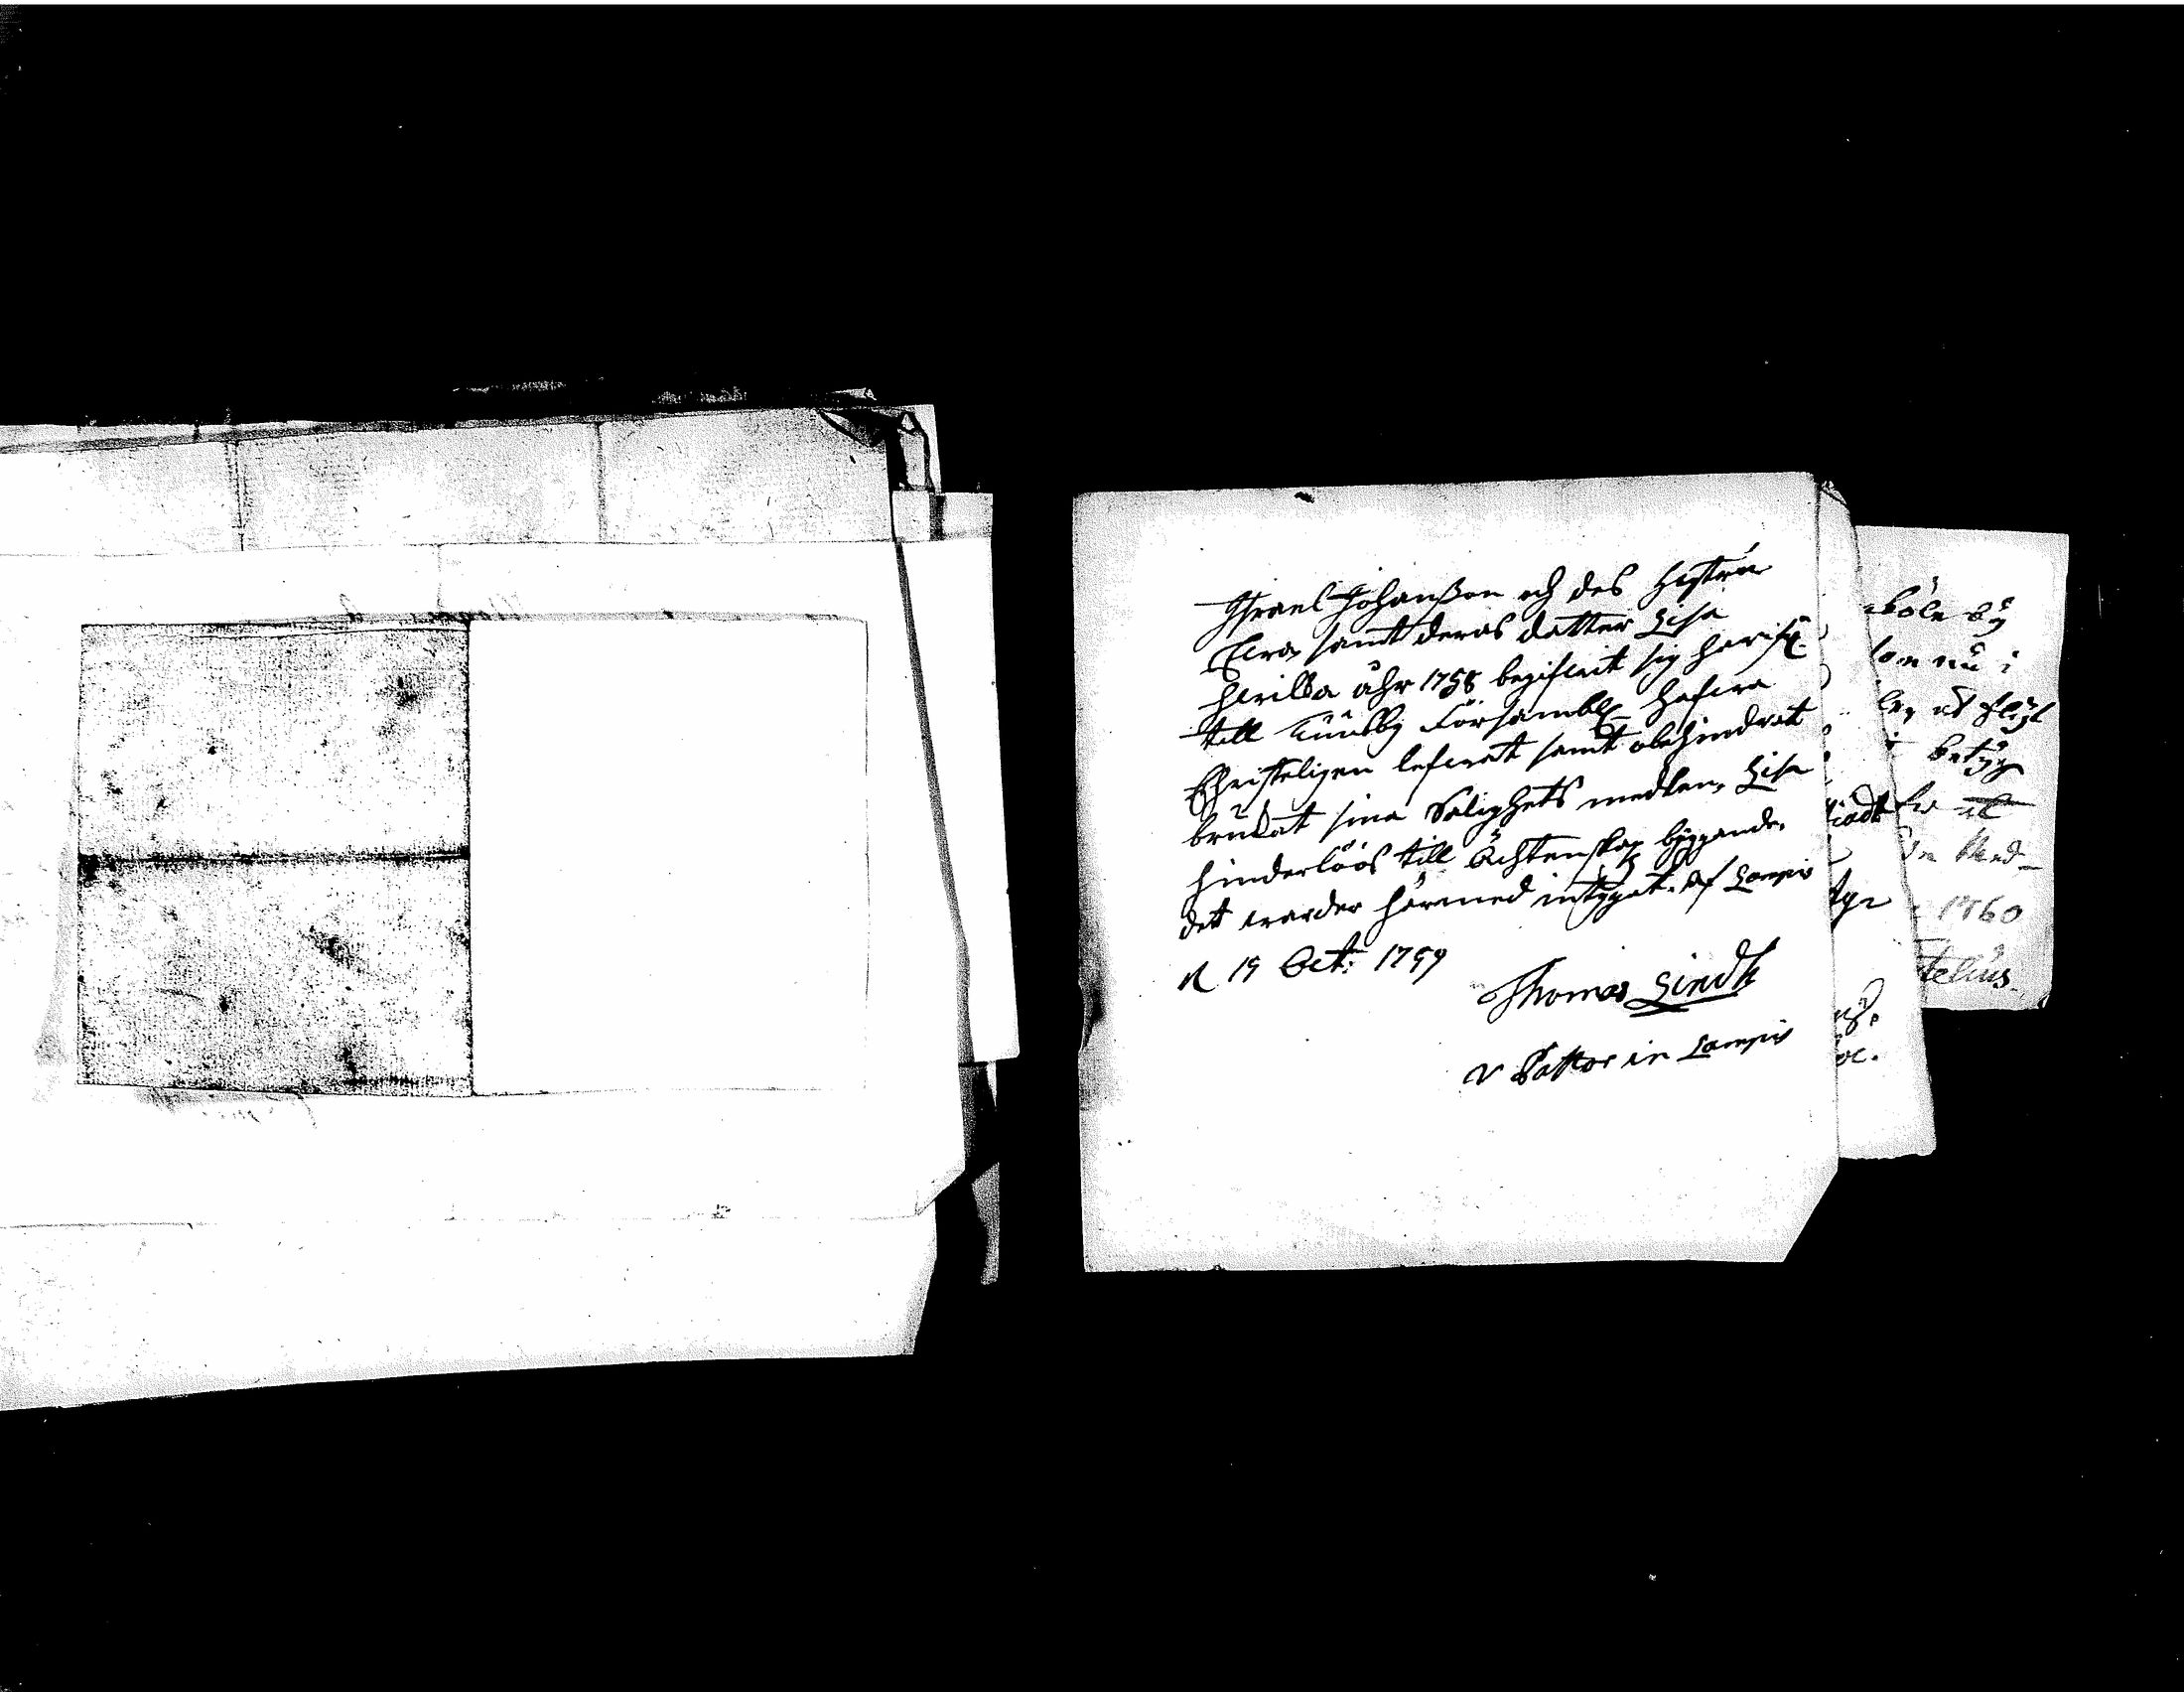 Israel Johanßon och des hustru
Ewa samt deras dotter Lisa
hwilka åhr 1758 begifwit sig härifr.
till Kuulby Försambl. hafwa
Christeligen lefwat samt obehindrat
brukat sina Salighets medlen, Lisa
hinderlöös till Ächtenskap byggande,
det warder härmed intygat. Af Lampis
d 19 Oct: 1759
Thomas Lindh
V Pastor in Lampis
böle bÿ
som nu i
betÿg
1760
telius